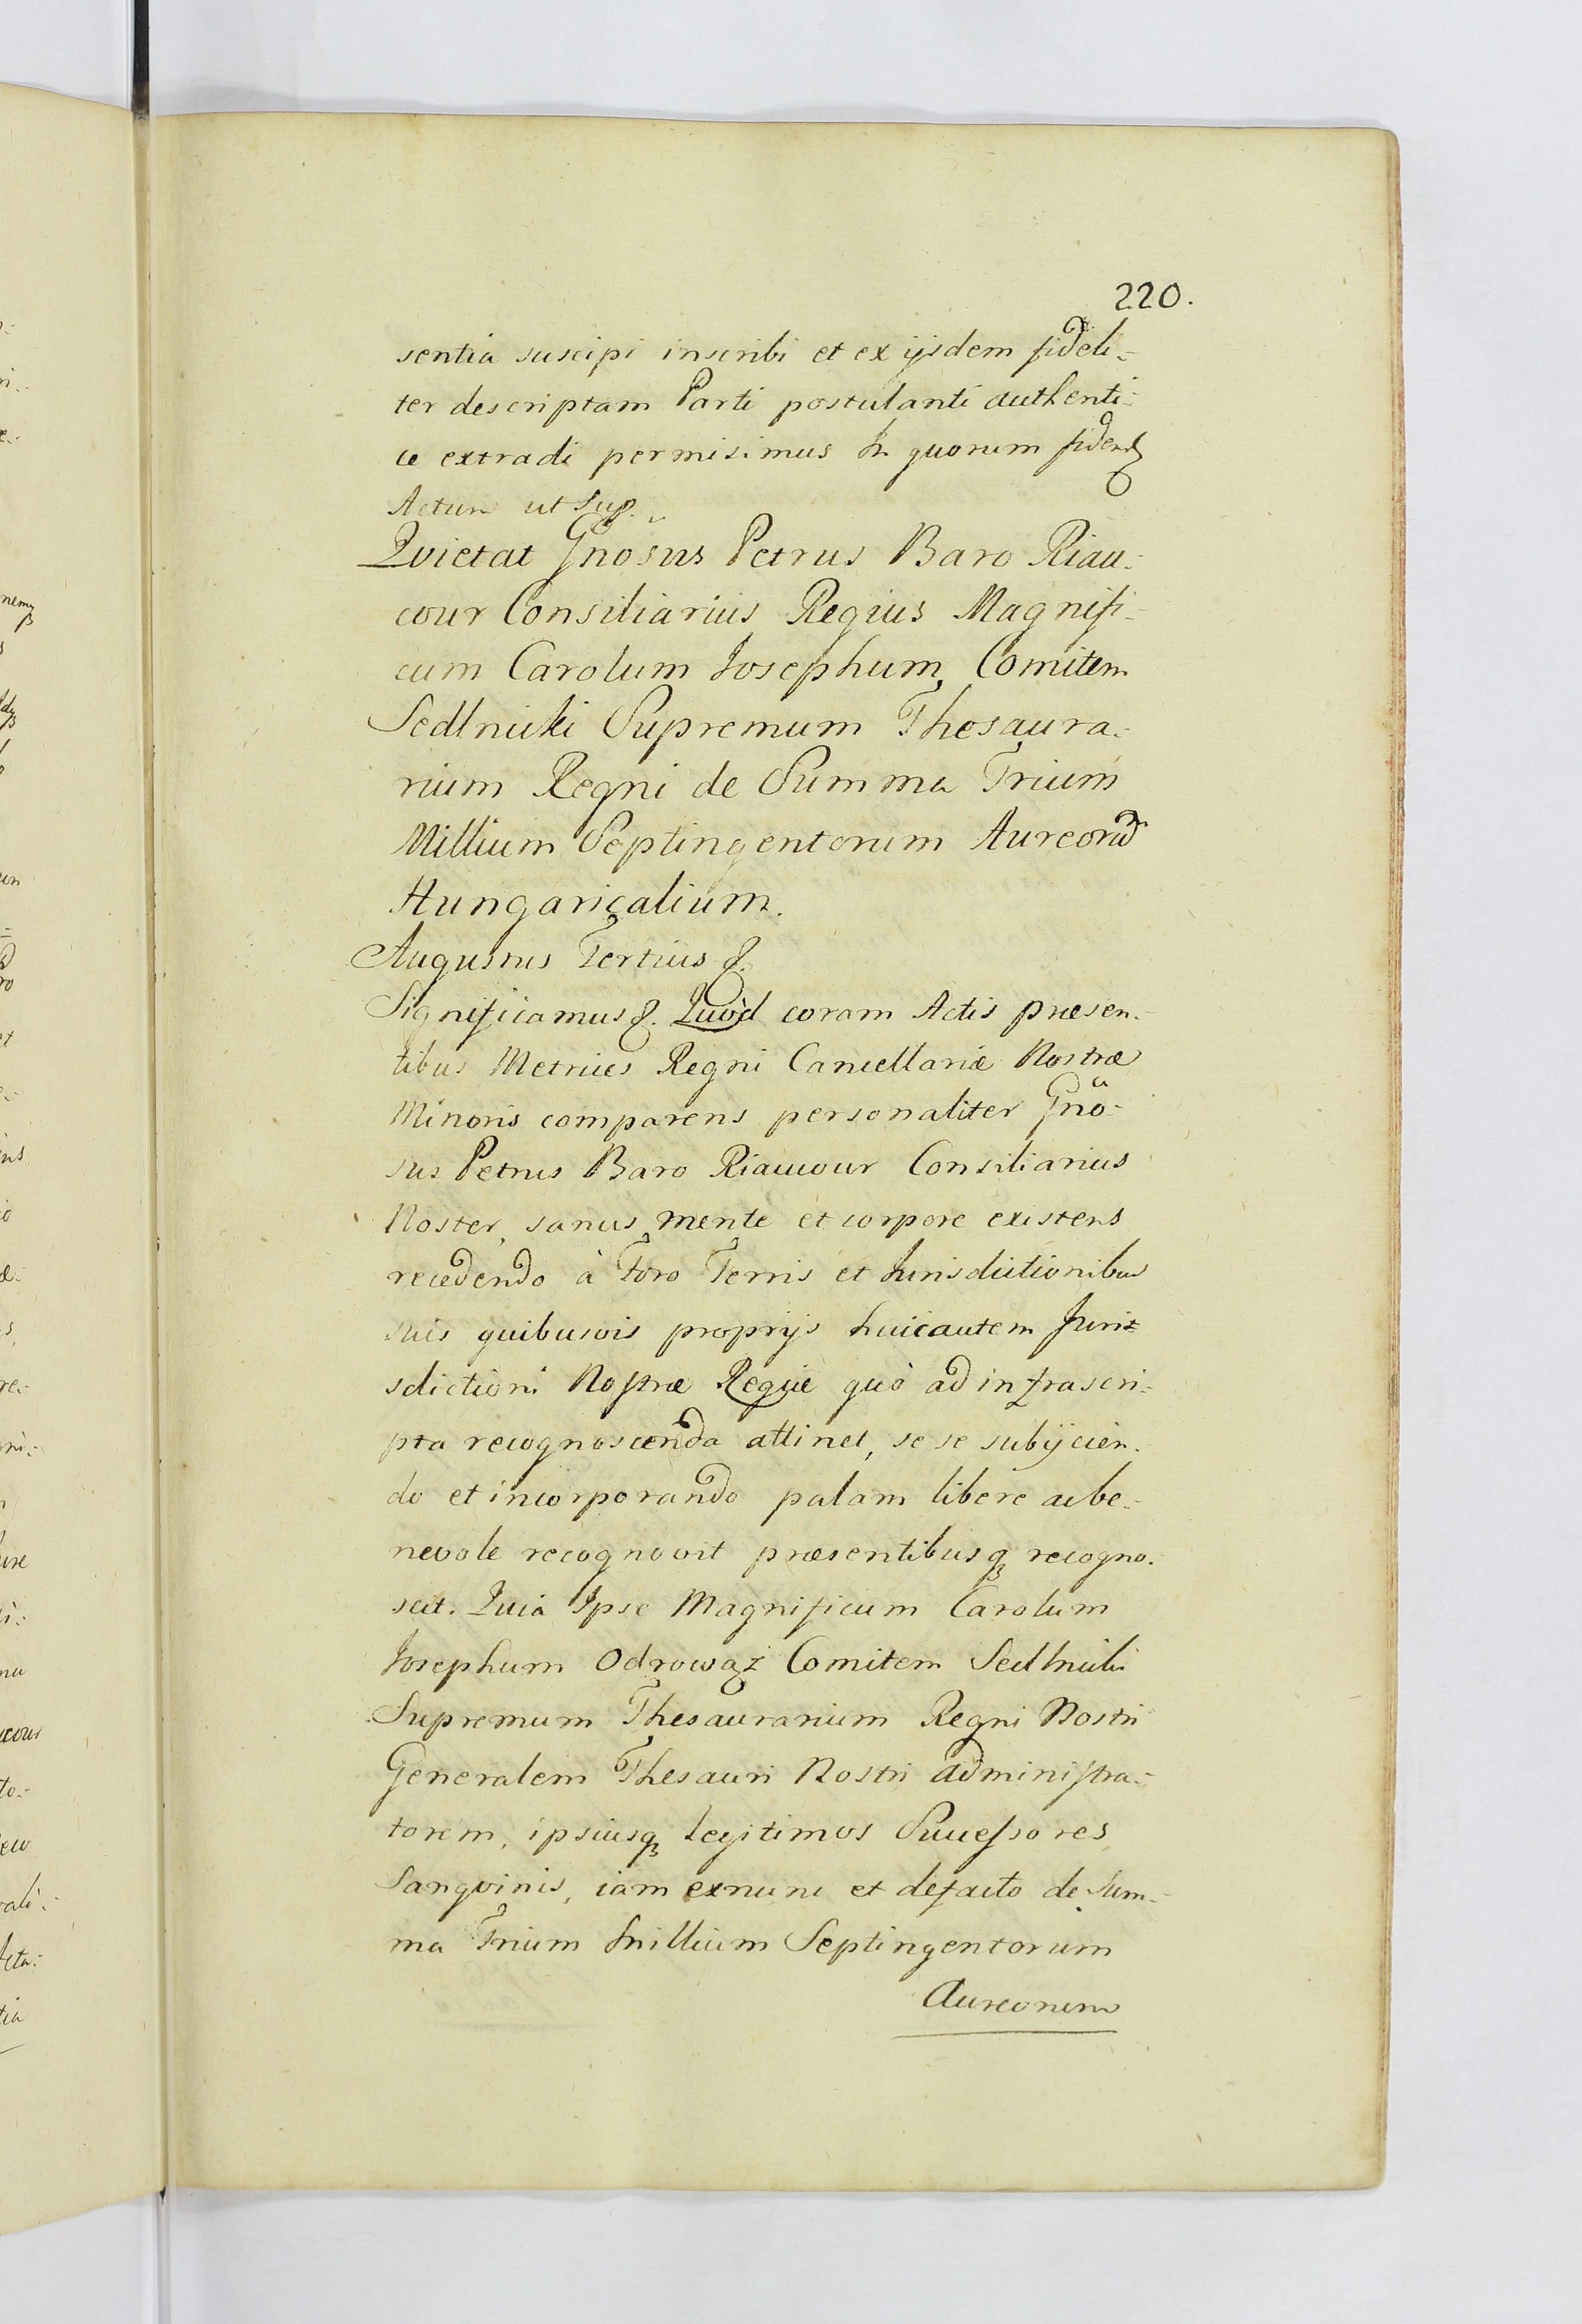 220.
sentia suscipi inscribi et ex ijsdem fideli-
ter descriptam Parti postulanti authenti-
ce extradi permisimus In quorum fidem
Actum ut Sup.
Qvietat Gnosus Petrus Baro Riau-
cour Consiliarius Regius Magnifi-
cum Carolum Josephum Comitem
Sedlnicki Supremum Thesaura-
rium Regni de Summa Trium
Millium Septingentorum Aureorum
Hungaricalium.
Augustus Tertius &.
Significamus &. Quòd coram Actis praesen-
tibus Metrices Regni Cancellariæ Nostræ
Minoris comparens personaliter Gno-
sus Petrus Baro Riaucour Consiliarius
Noster, sanus mente et corpore existens
recedendo à Foro Terris et Jurisdictionibus
suis quibusvis proprijs huic autem Juri-
sdictioni Nostræ Regiæ quò ad infrascri-
pta recognoscenda attinet, se se subijcien-
do et incorporando palam libere ac be-
nevole recognovit præsentibusq recogno-
scit. Quia Ipse Magnificum Carolum
Josephum Odrowąż Comitem Sedlnicki
Supremum Thesaurarium Regni Nostri
Generalem Thesauri Nostri administra-
torem, ipsiusq legitimos Successores
Sangvinis, iam exnunc et defacto de Sum-
ma Trium Millium Septingentorum
Aureorum